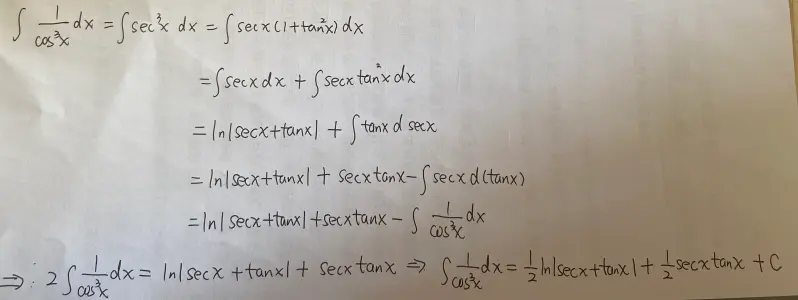 ∫ 1/cos³x dx = ∫ sec³x dx = ∫ secx (1+tan²x) dx
= ∫ secx dx + ∫ secx tan²x dx
= ln|secx+tanx| + ∫ tanx d secx
= ln|secx+tanx| + secx tanx - ∫ secx d(tanx)
= ln|secx+tanx| + secx tanx - ∫ 1/cos³x dx
⇒: 2∫ 1/cos³x dx = ln|secx+tanx| + secx tanx ⇒ ∫ 1/cos³x dx = 1/2 ln|secx+tanx| + 1/2 secx tanx + C